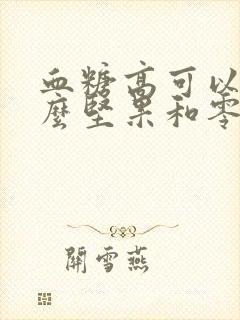 血糖高可以
麼堅果和零
開雪燕